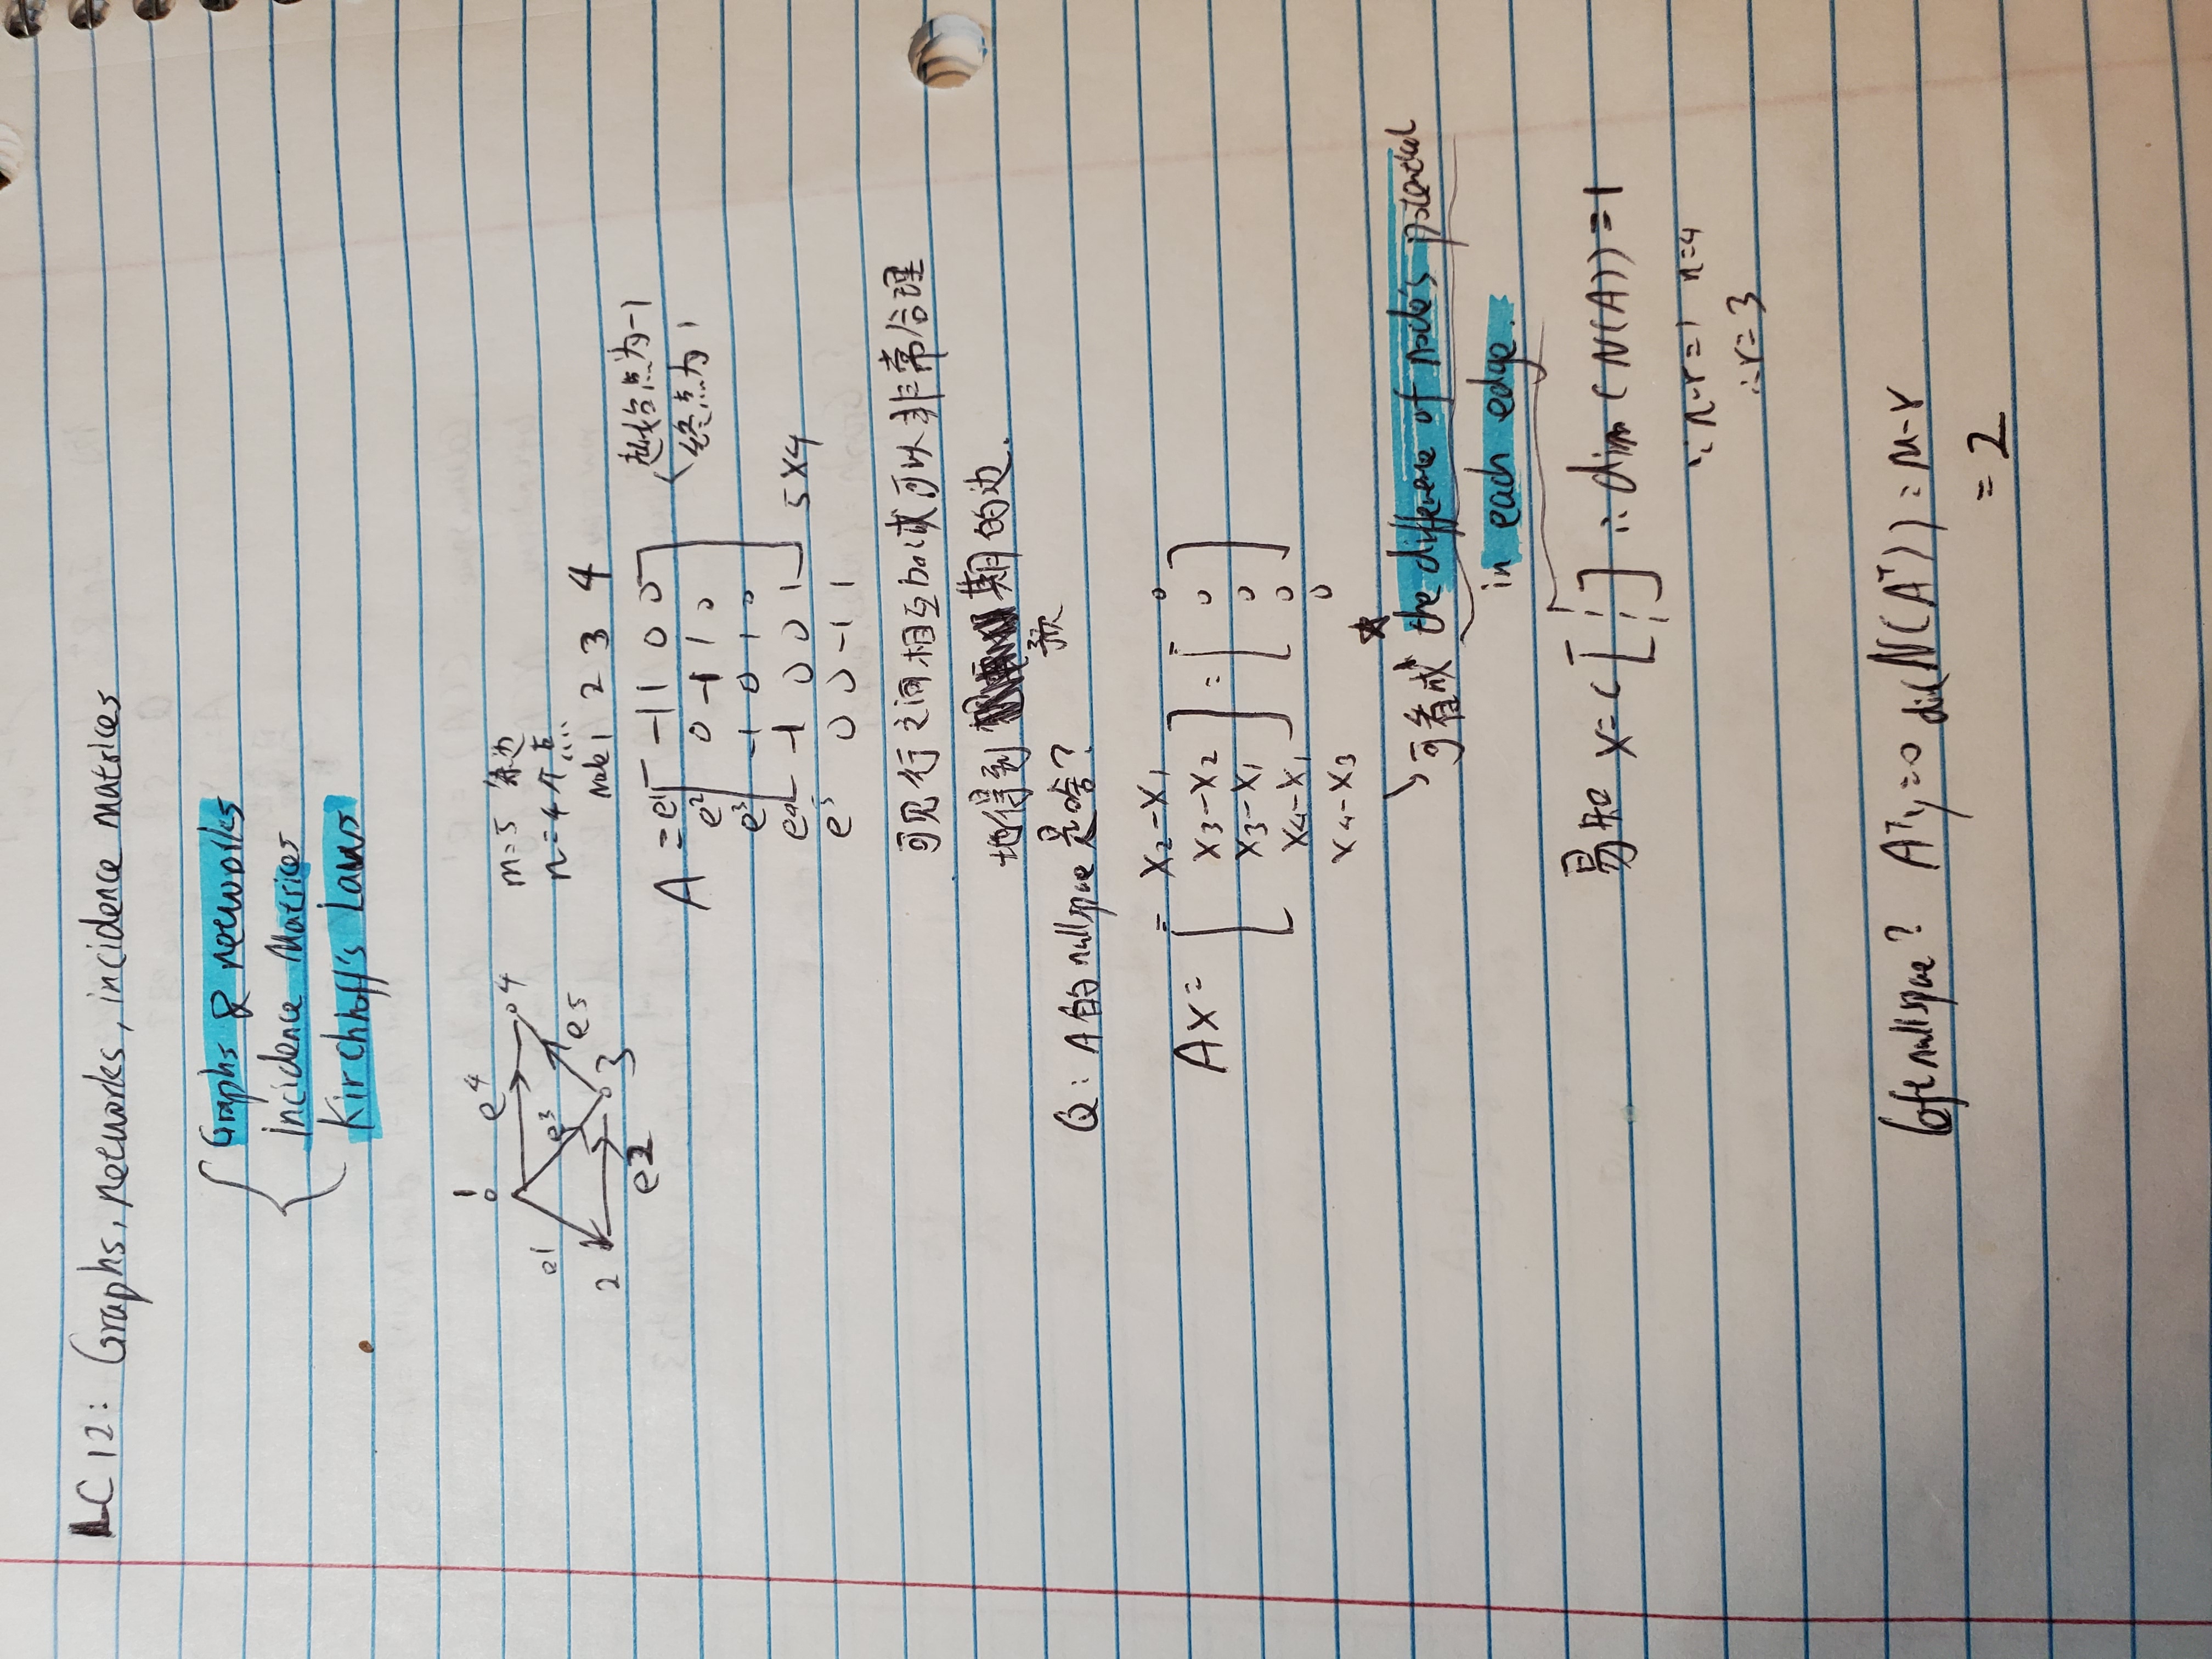 LC 12: Graphs, networks, incidence matrices
Graphs & networks
Incidence Matrices
Kirchhoff's Laws
1
e4
4
e1
e3
e5
2
3
e2
m=5 条边
n=4个点
Node 1 2 3 4
A = e1 [ -1 1 0 0 ]
e2 0 -1 1 0
e3 -1 0 1 0
e4 -1 0 0 1 5×4
e5 0 0 -1 1
起始点为-1
终点为1
可见行之间相互加减可以非常合理
地得到预期的边.
Q: A的nullspace是啥?
Ax = [ x2-x1 ] = [ 0 ]
x3-x2 0
x3-x1 0
x4-x1 0
x4-x3 0
☆
可看成 the difference of node's potential
in each edge.
易知 x= c [ 1 1 1 1 ] ∴ dim (N(A)) = 1
∵ n-r=1 n=4
∴ r=3
left nullspace? Aᵀy=0 dim(N(Aᵀ)) = m-r
= 2